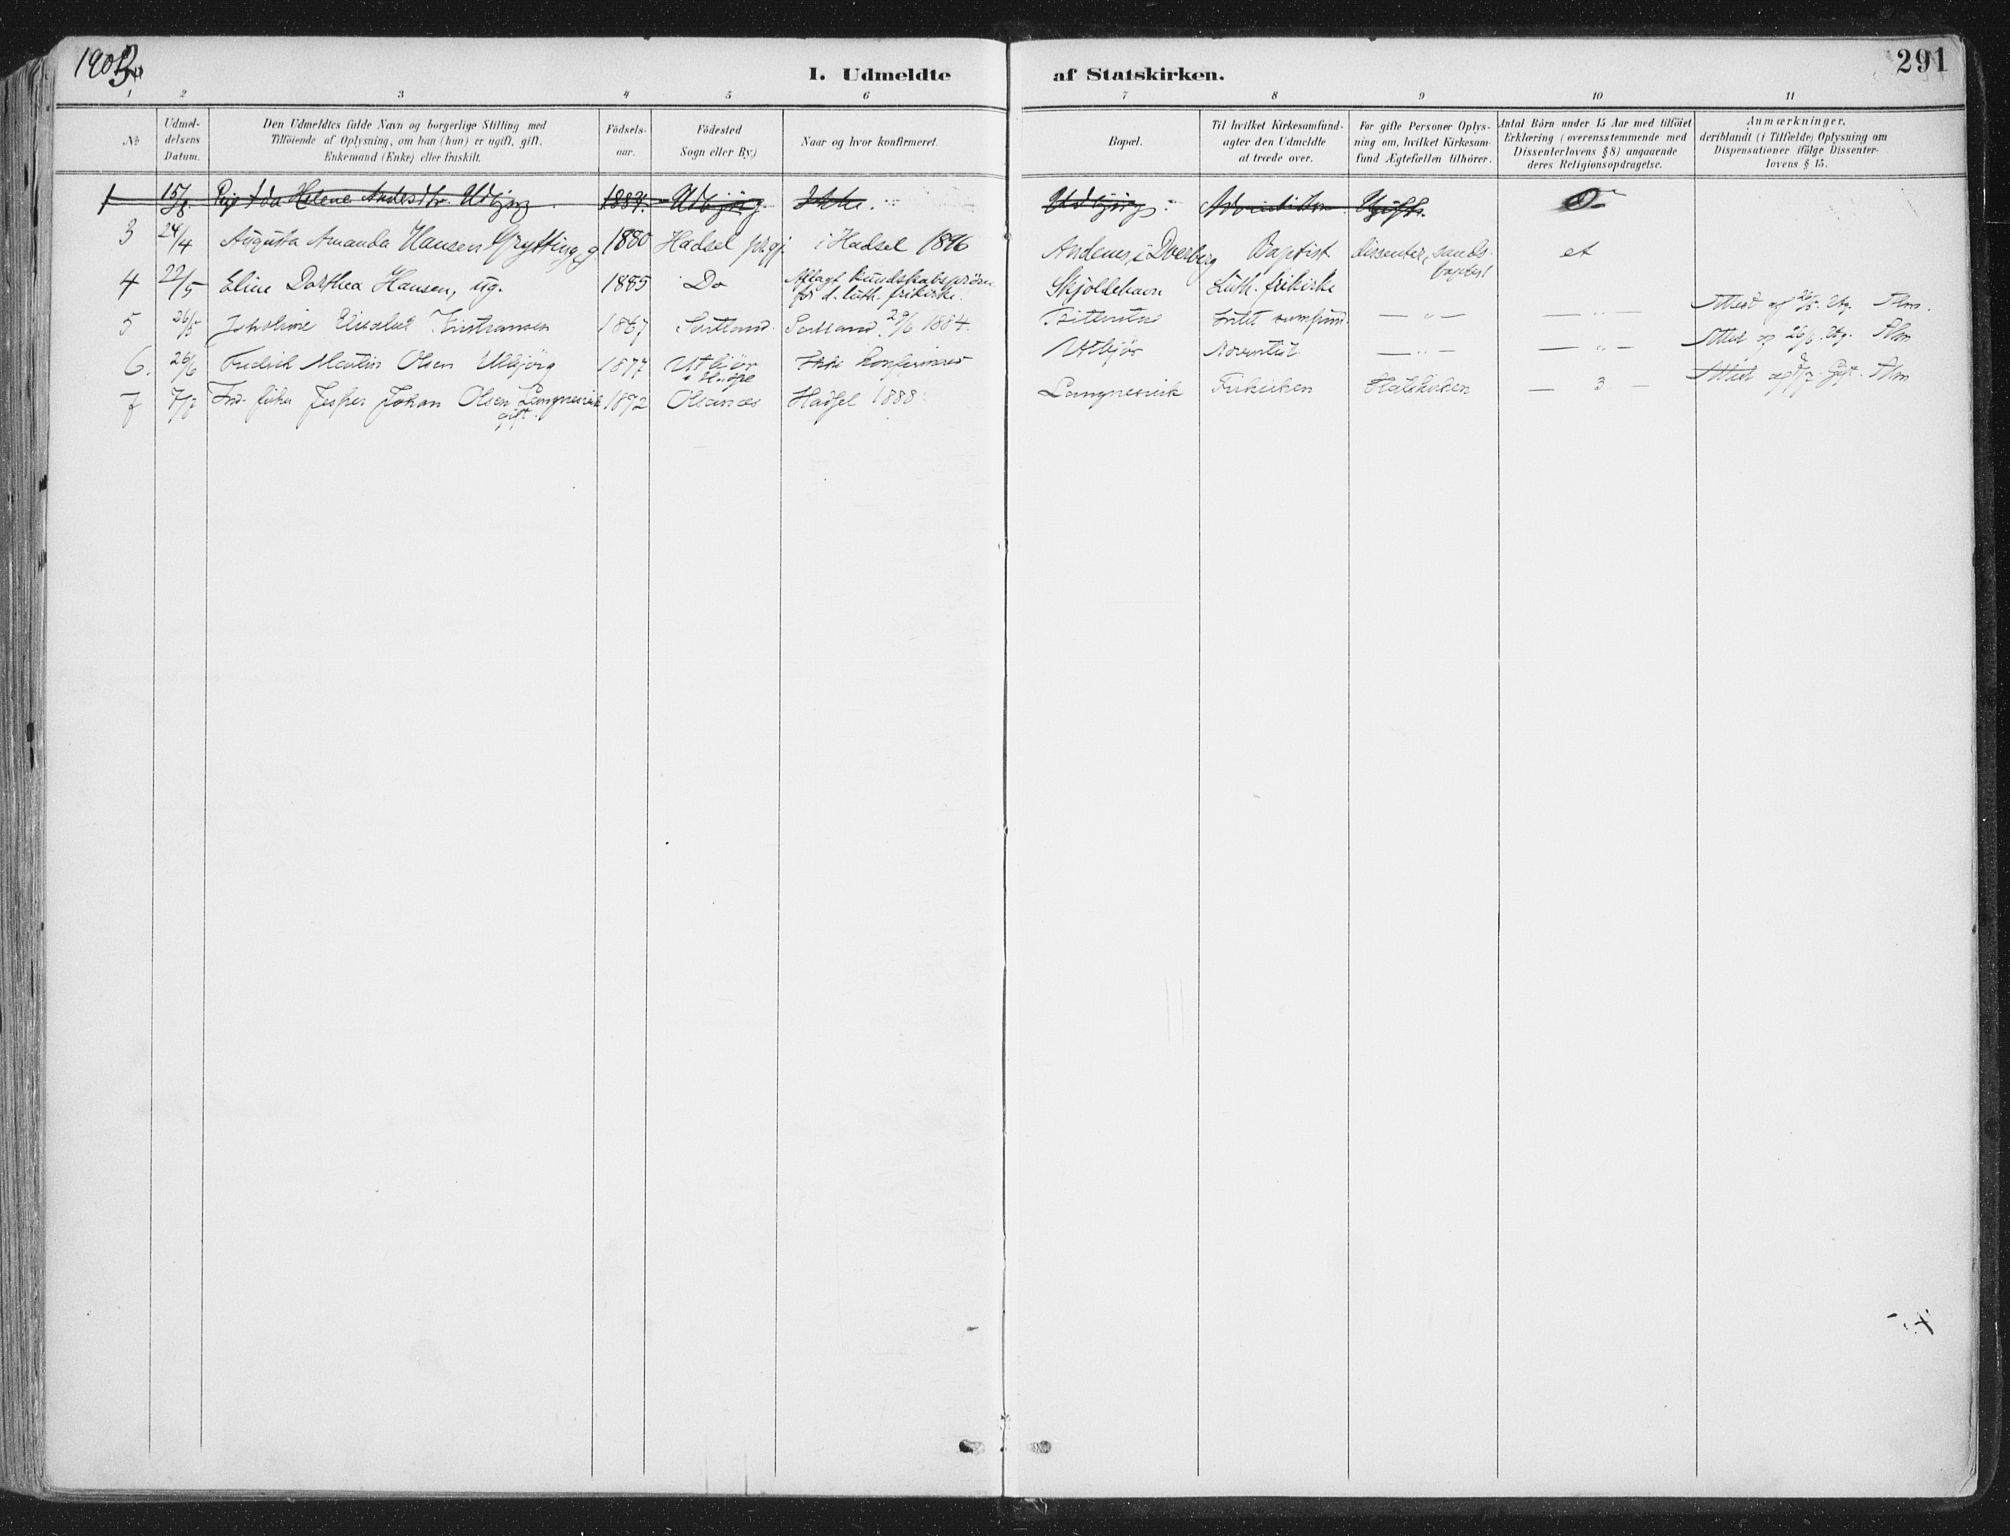 1903
I. Udmeldte af Statskirken.
291
1 2 3 4 5 6 7 8 9 10 11
No
Udmeldelsens Datum.
Den Udmeldtes fulde Navn og borgerlige Stilling med
Tilföiende af Oplysning, om han (hun) er ugift, gift,
Enkemand (Enke) eller fraskilt.
Födsels-
aar.
Födested
Sogn eller By)
Naar og hvor konfirmeret.
Bopæl.
Til hvilket Kirkesamfund-
agter den Udmeldte
at træde over.
For gifte Personer Oplys-
ning om, hvilket Kirkesam-
fund Ægtefællen tilhörer.
Antal Börn under 15 Aar med tilföiet
Erklæring (overensstemmende med
Dissenterlovens § 8) angaaende
deres Religionsopdragelse.
Anmærkninger,
deriblandt (i Tilfælde) Oplysning om
Dispensationer ifölge Dissenter-
lovens § 15.
1 15/8 Pige Ada Helene Andersdtr. Udbjörg 1884. Udbjörg Ikke. Udbjörg Adventisten Ugift. 0
3 24/4 Augusta Amanda Hansen Grytting, g 1880 Hadsel prgj. i Hadsel 1896 Andenes i Dverberg Baptist dissenter, baptist et
4 22/5 Eline Dorthea Hansen, ug. 1885 Do Aflagt kundskabspröve for d. luth. frikirke. Skjoldehavn Luth. frikirke
5 26/5 Elisabet 1867 Sortland. Sortland 29/6 1884. Intet samfund. — „ — — „ — Attest af 26/5. Utg. Alm.
6. 26/6 Fredrik Martin Olsen Utbjörg 1877 Utbjör Ikke konfirmeret Utbjör Adventist. — „ — — „ — Attest og 26/6. Utg. Alm
7 7/7 Ind. fisker Jesper Johan Olsen Langnesvik gift. 1872 Olsnæs Hadsel 1888 Langnesvik Frikirken Statskirken — 3 — Attest og 7/7. Gift. Alm